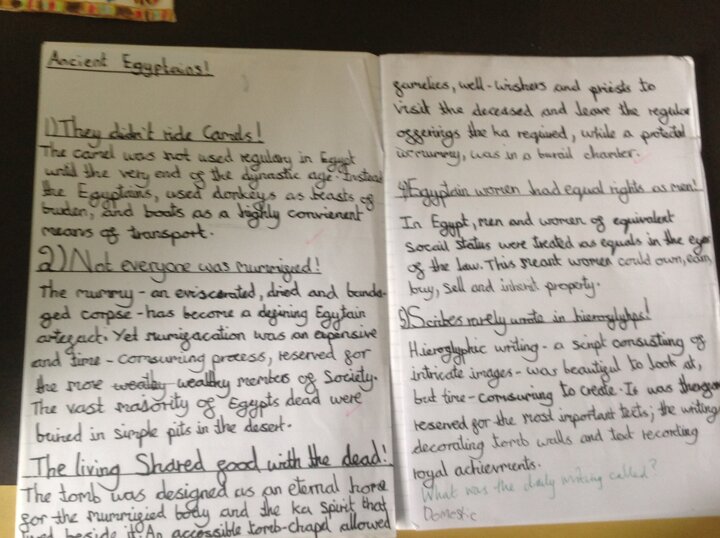 Ancient Egyptains!
1) They didn't ride Camels!
The camel was not used regulary in Egypt
until the very end of the dynastic age. Instead
the Egyptians, used donkeys as beasts of
burden, and boats as a highly convienent
means of transport.
2) Not everyone was mummified!
The mummy - an eviscerated, dried and banda-
ged corpse - has become a defining Egytain
artefact. Yet mumification was an expensive
and time - comsuring process, reserved for
the more wealthy members of Society.
The vast majority of Egypts dead were
buried in simple pits in the desert.
The living Shared food with the dead!
The tomb was designed as an eternal home
for the mummified body and the ka spirit that
lived beside it. An accessible tomb-chapel allowed
famelies, well-wishers and priests to
visit the deceased and leave the regular
offerings the ka required, while a
mummy, was in a burail chamber.
4) Egyptain women had equal rights as men!
In Egypt, men and women of equivalent
socail status were treated as equals in the eyes
of the law. This meant women could own, earn,
buy, sell and inherit property.
5) Scribes rarely wrote in hieroglyhps!
Hieroglyphic writing - a script consusting of
intricate images - was beautiful to look at,
but time - comsuring to create. It was
reserved for the most important texts; the writings
decorating tomb walls and text recording
royal achievments.
What was the daily writing called?
Domestic